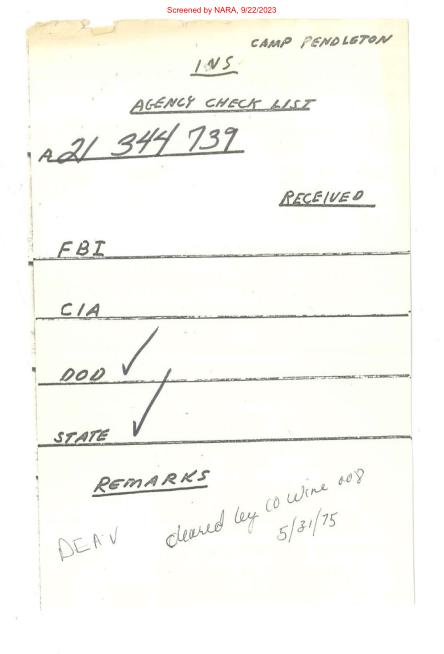 Screened by NARA, 9/22/2023
CAMP PENDLETON
INS
AGENCY CHECK LIST
A 21 344 739
RECEIVED
FBI
CIA
DOD ✓
STATE ✓
REMARKS
DEA ✓ cleared by CO Wine 008
5/31/75